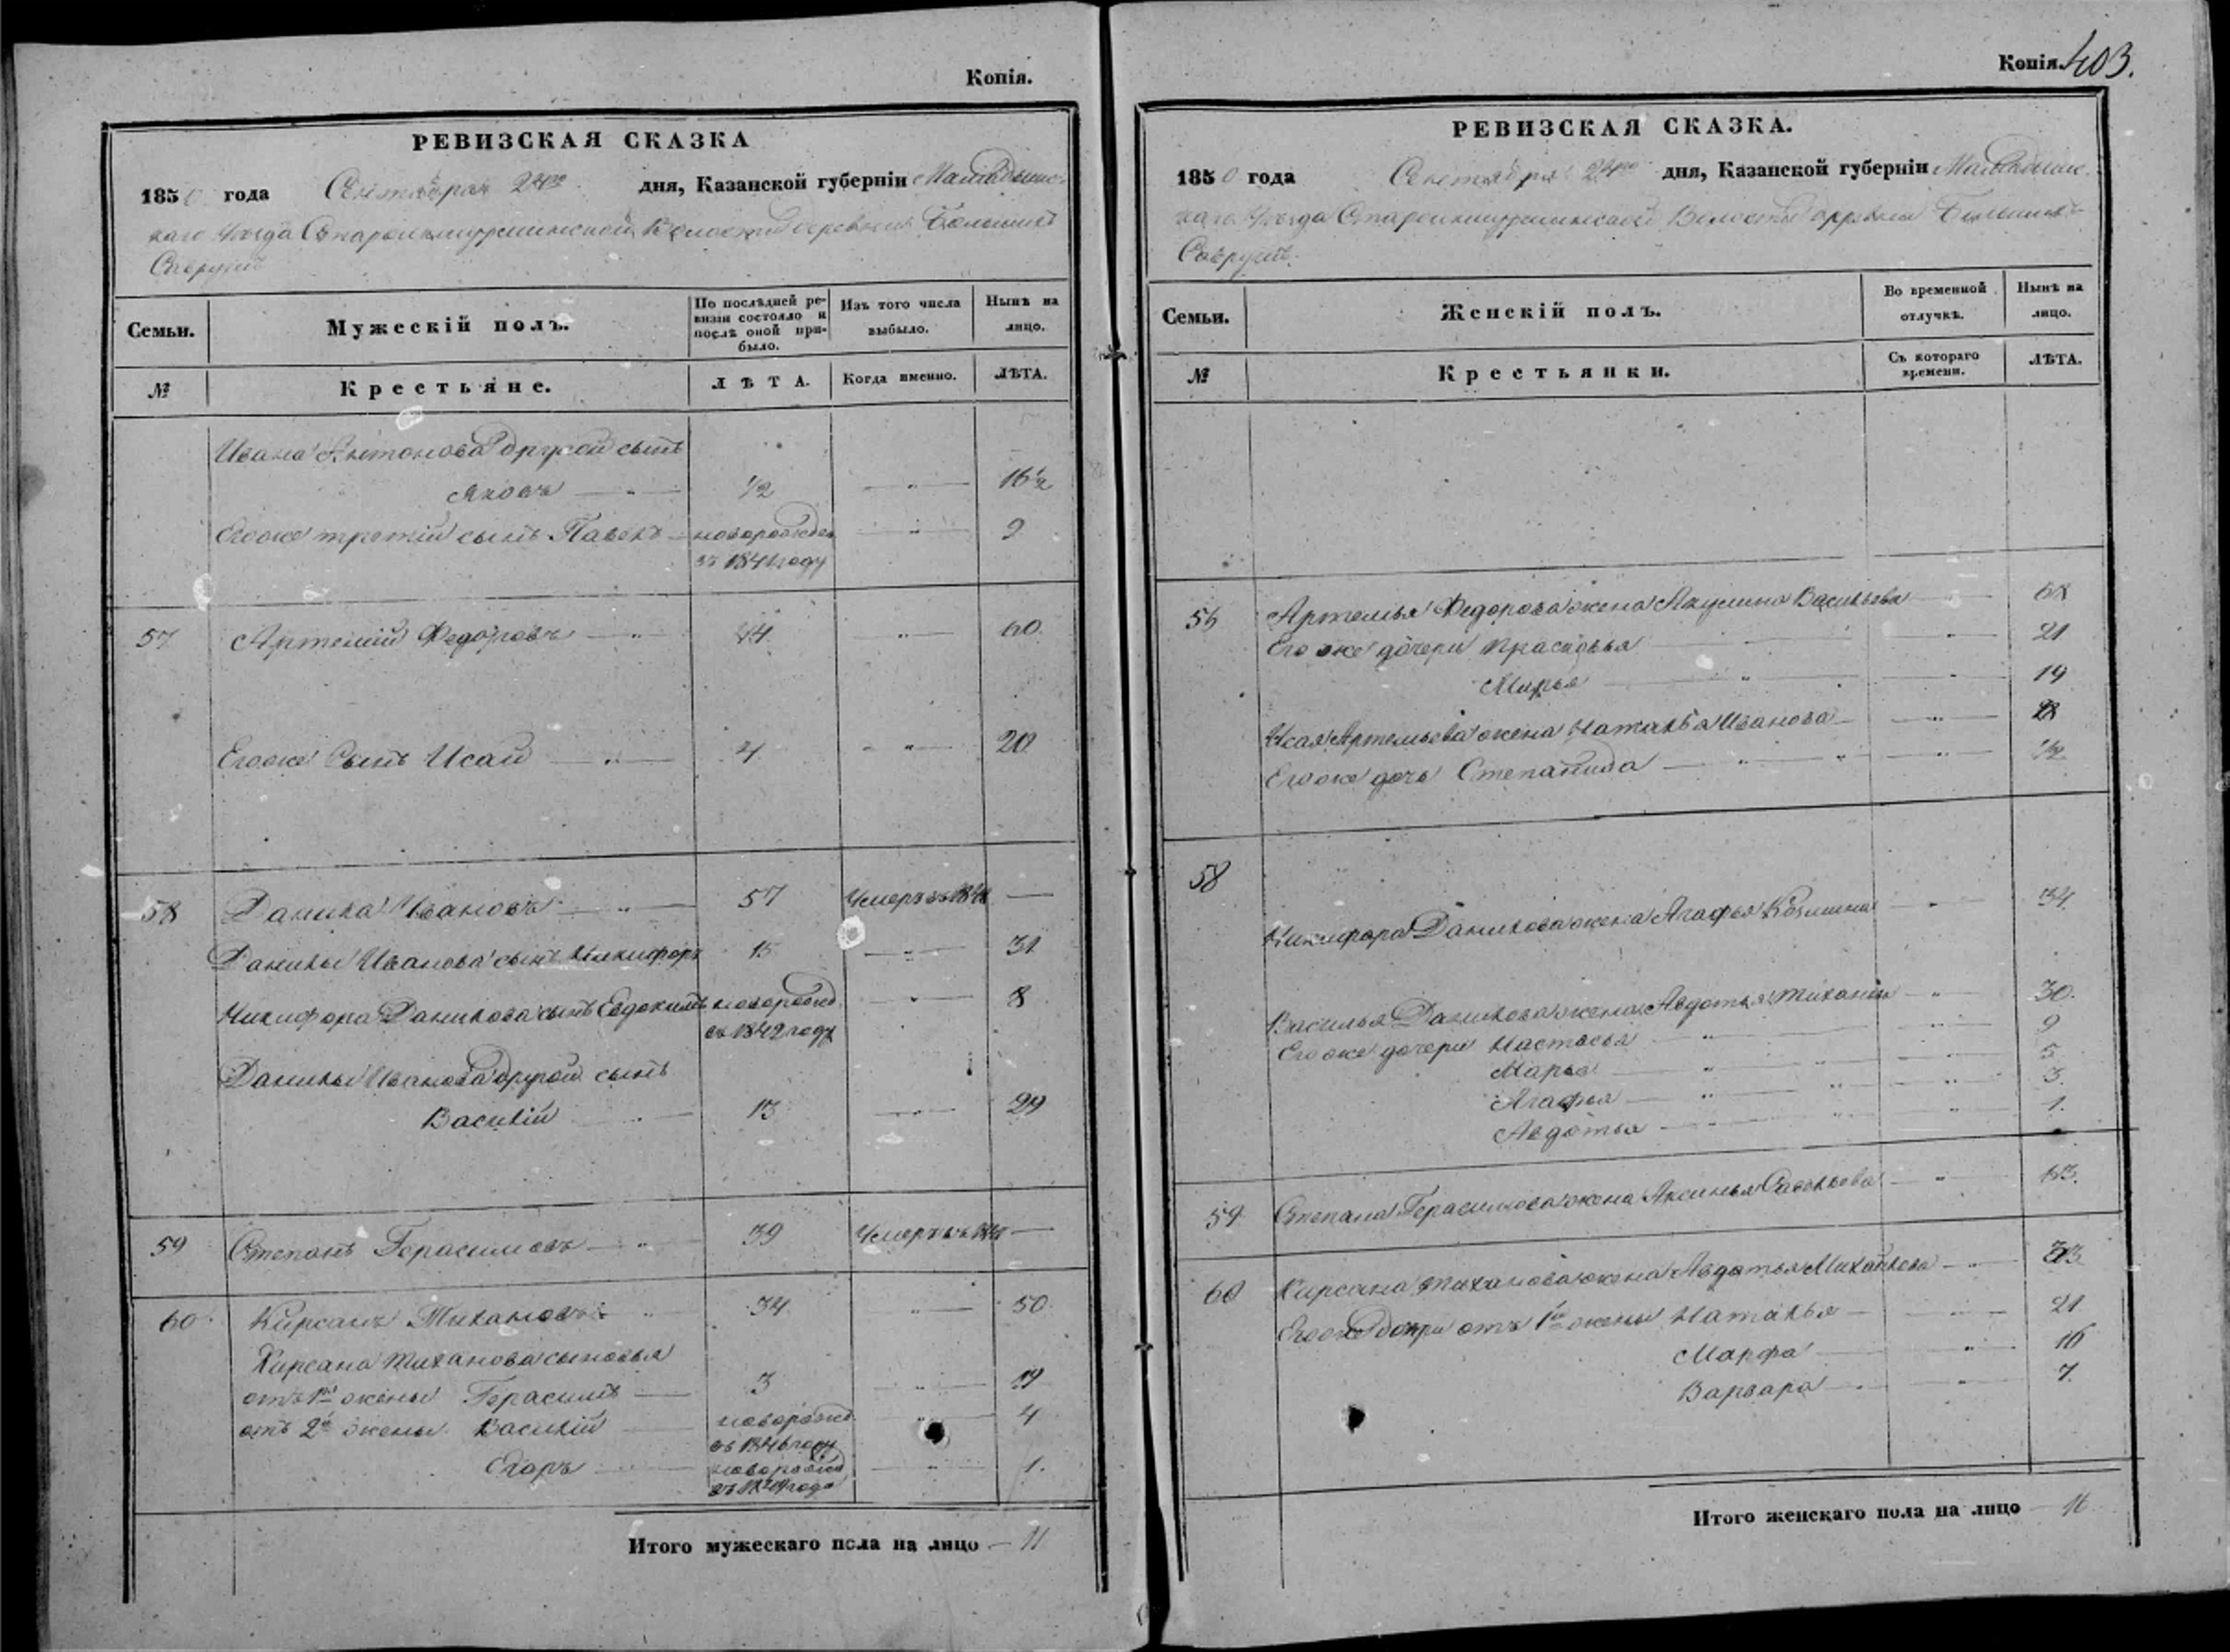 Копія.
РЕВИЗСКАЯ СКАЗКА
1850 года Сентября 24го дня, Казанской губерніи Мамадышс-
каго Уѣзда Волости деревни Большихъ
Саврушъ
Семьи. Мужескій полъ. По послѣдней ре-визіи состояло и послѣ оной при-было. Изъ того числа выбыло. Нынѣ на лицо.
№ Крестьяне. ЛѢТА. Когда именно. ЛѢТА.
Ивана Антонова другой сынъ
Яковъ — " — 1/2 — " — 16 1/2
Егоже третій сынъ Павелъ — новорожден — " — 9
въ 1841 году
57 Артемій Федоровъ — " — 44 " — 60.
Егоже Сынъ Исай — " — 4 — " — 20
58 Данила Ивановъ — " — 57 Умеръ въ —
Данилы Иванова сынъ Никифоръ 15 — " — 31
Никифора Данилова сынъ Евдокимъ новорожд. — " — 8
въ 1842 году
Данилы Иванова другой сынъ
Василій — 13 — " — 29
59 Степанъ Герасимовъ — " — 39 Умеръ въ —
60 Кирсанъ Тихановъ — " 34 " — 50
Кирсана Тиханова сыновья
отъ 1й жены Герасимъ — 3 — " — 19
отъ 2й жены Василій — новорожд. " — 4
въ 1846 году
Егоръ — новорожд — " — 1.
въ 1849 года
Итого мужескаго пола на лицо — 11
Копія. 403.
РЕВИЗСКАЯ СКАЗКА.
1850 года Сентября 24го дня, Казанской губерніи Мамадышс-
каго Уѣзда Волости деревни Большихъ
Саврушъ.
Семьи. Женскій полъ. Во временной отлучкѣ. Нынѣ на лицо.
№ Крестьянки. Съ котораго времени. ЛѢТА.
Артемья Федорова жена Акулина Васильева —
Его же дочери Прасковья — " — 21
Марья — " — " — 19
Исая Артемьева жена Наталья Иванова — " —
Егоже дочь Степанида — " — " —
58
Никифора Данилова жена Агафья — " — 34
Василья Данилова жена Авдотья — " — 30.
Егоже дочери Настасья — " — " — 9
Марья — " — " — 5
Агафья — " — " — 3.
Авдотья — " — 1.
59 Степана Герасимова жена Аксинья Савельева — " —
60 Кирсана Тиханова жена Авдотья Михайлова — " —
Егоже дочери отъ 1й жены Наталья — " — 21
Марфа — " — 16
Варвара — " — 7.
Итого женскаго пола на лицо —